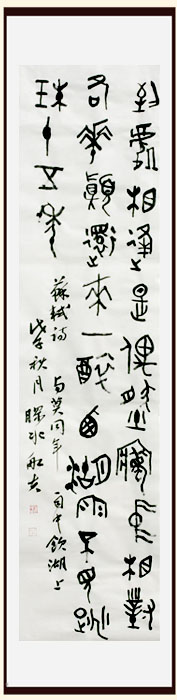 到處相逢是偶然夢中相對
各華顛還來一醉西湖雨不見跳
珠十五年
蘇軾詩 与莫同年雨中飲湖上
戊子秋月